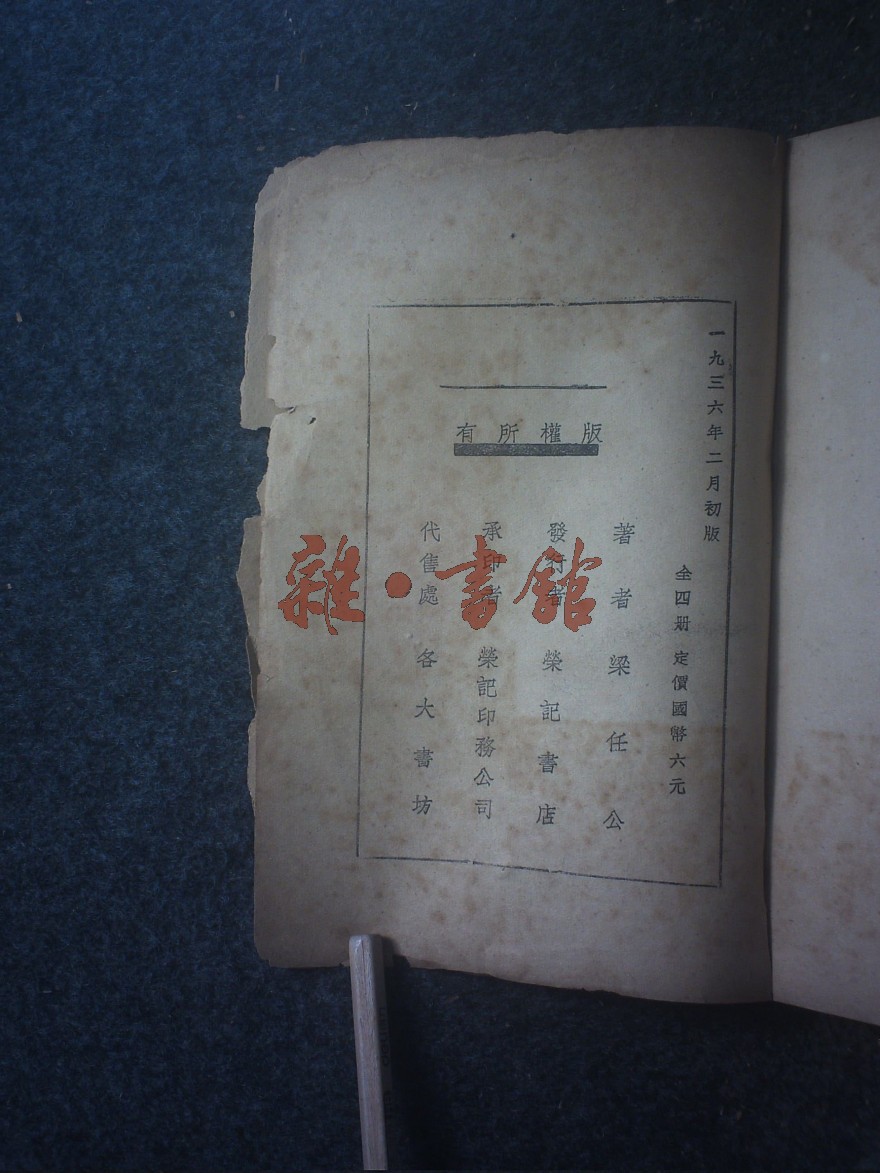 一九三六年二月初版
全四册 定價國幣六元
版權所有
著者 梁任公
發行者 榮記書店
承印者 榮記印務公司
代售處 各大書坊
雜·書館